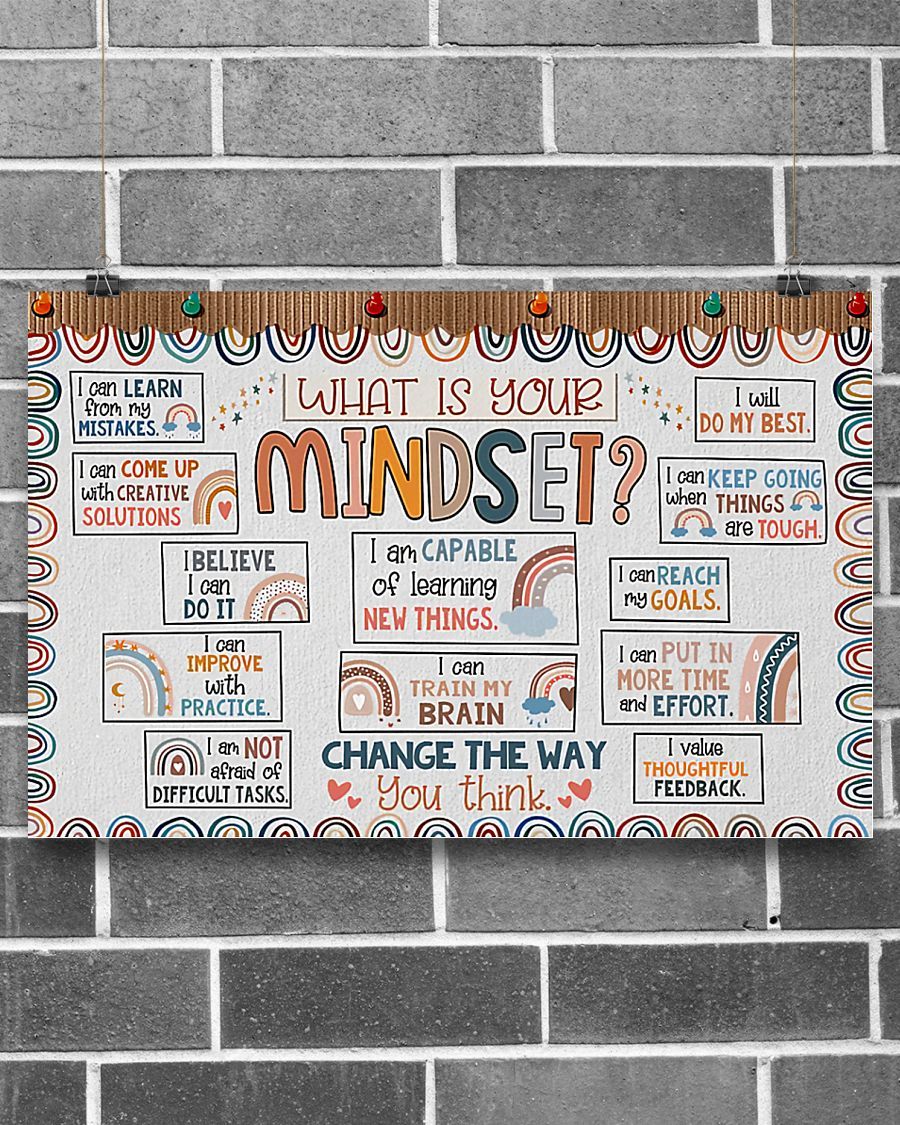 WHAT IS YOUR
MINDSET?
I can LEARN
from my
MISTAKES.
I will
DO MY BEST.
I can COME UP
with CREATIVE
SOLUTIONS
I can KEEP GOING
when THINGS
are TOUGH.
I BELIEVE
I can
DO IT
I am CAPABLE
of learning
NEW THINGS.
I can REACH
my GOALS.
I can
IMPROVE
with
PRACTICE.
I can
TRAIN MY
BRAIN
I can PUT IN
MORE TIME
and EFFORT.
I am NOT
afraid of
DIFFICULT TASKS.
CHANGE THE WAY
You think.
I value
THOUGHTFUL
FEEDBACK.